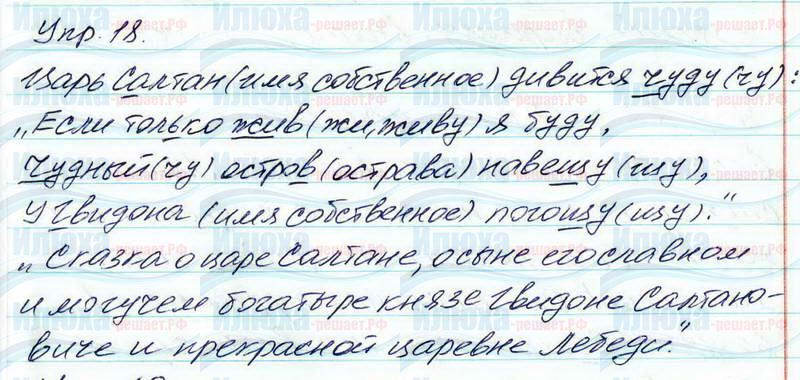 Упр. 18.
Царь Салтан (имя собственное) дивится чуду (чу):
„Если только жив (жи, живу) я буду,
Чудный (чу) остров (острава) навещу (щу),
У Гвидона (имя собственное) погощу (щу)."
„Сказка о царе Салтане, о сыне его славном
и могучем богатыре князе Гвидоне Салтано-
виче и прекрасной царевне Лебеди."